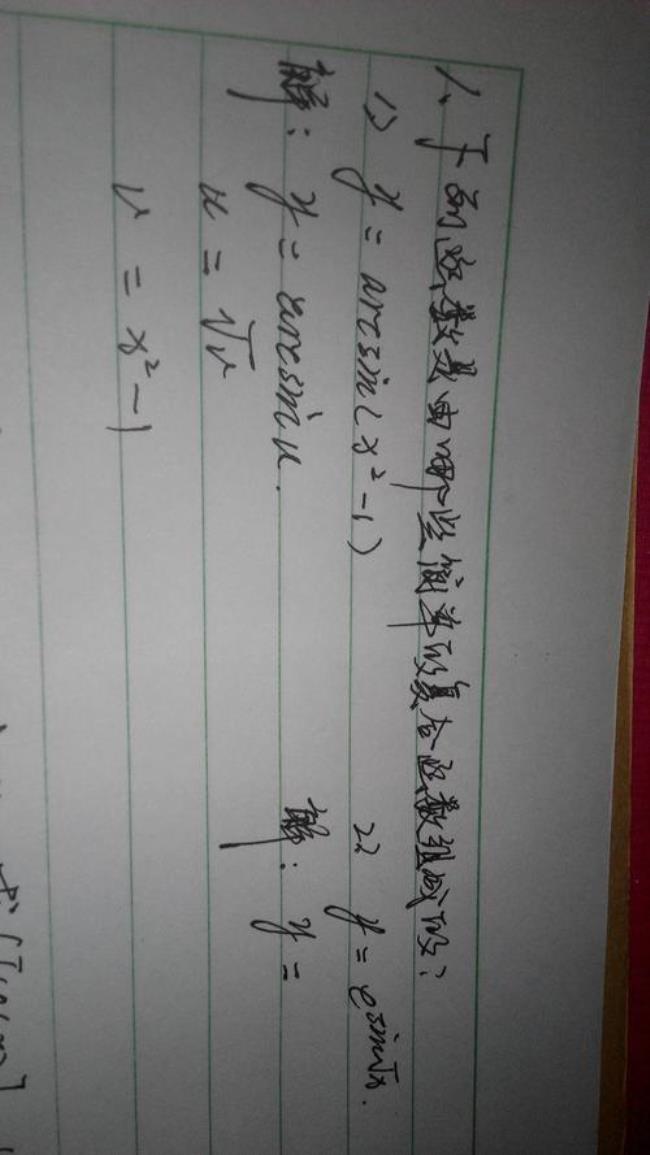 1、下列函数是由哪些简单的复合函数组成的:
1) y = arcsin(x²-1)   2) y = e^{sin√x}.
解: y = arcsin u.   解: y =
u = √v
v = x²-1